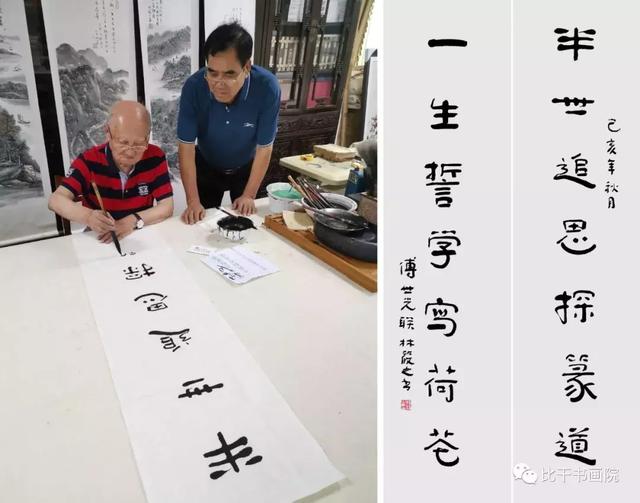 半世追思探
半世追思探篆道
己亥年秋月
一生誓学写荷花
傅世光联林筱之书
比干书画院